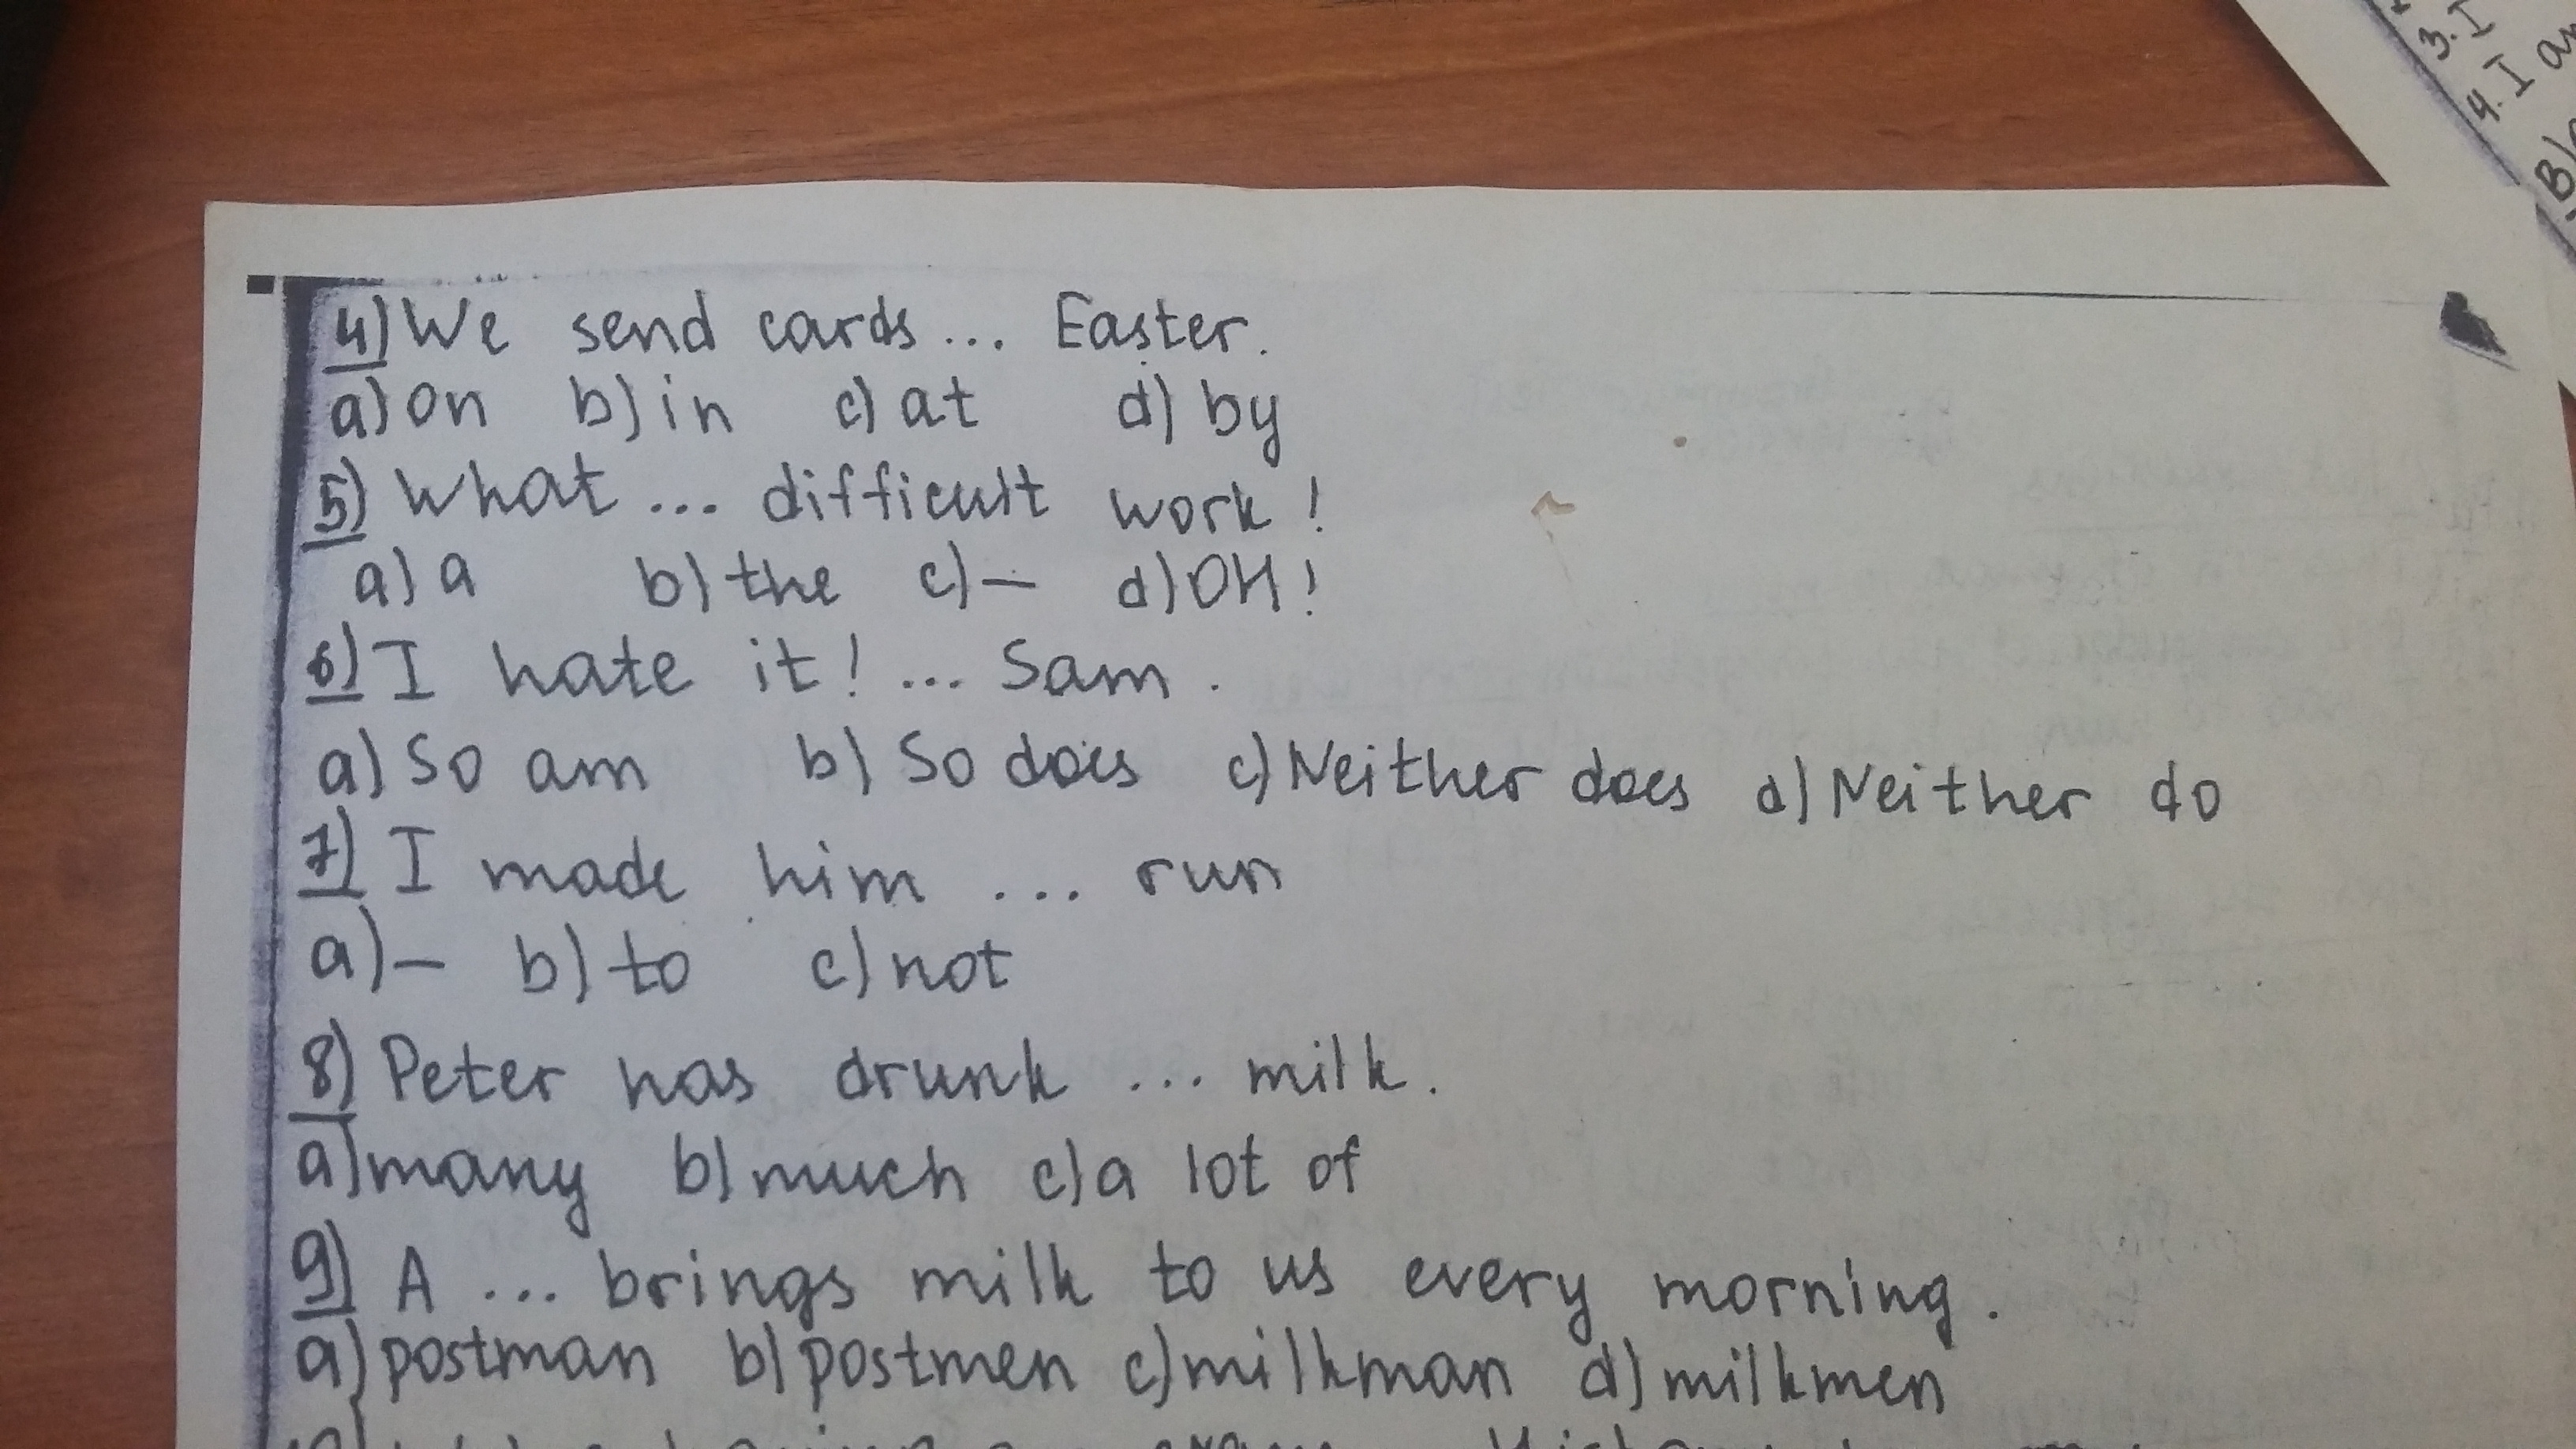 4) We send cards... Easter.
a) on b) in c) at d) by
5) What ... difficult work!
a) a b) the c) – d) OH!
6) I hate it! ... Sam.
a) So am b) So does c) Neither does d) Neither do
7) I made him ... run
a) – b) to c) not
8) Peter has drunk ... milk.
a) many b) much c) a lot of
9) A ... brings milk to us every morning.
a) postman b) postmen c) milkman d) milkmen
3. I
4. I